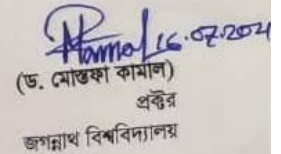 16.07.2024
(ড. মোস্তফা কামাল)
প্রক্টর
জগন্নাথ বিশ্ববিদ্যালয়